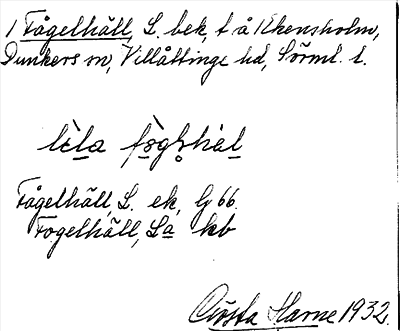 1 Fågelhäll, L. bek, t å Åkensholm,
Dunkers sn, Villåttinge hd, Sörml. l.
lìla fògḷhèl
Fågelhäll, L. ek, lj 66.
Fogelhäll, La kb
Gösta Harne 1932.